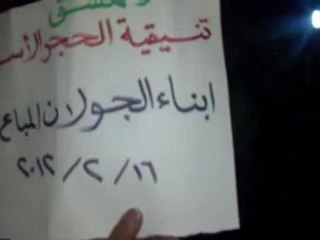 دمشق
تنسيقية الحجر الأسـ
ابناء الجولان المباع
٢٠١٢/٢/١٦